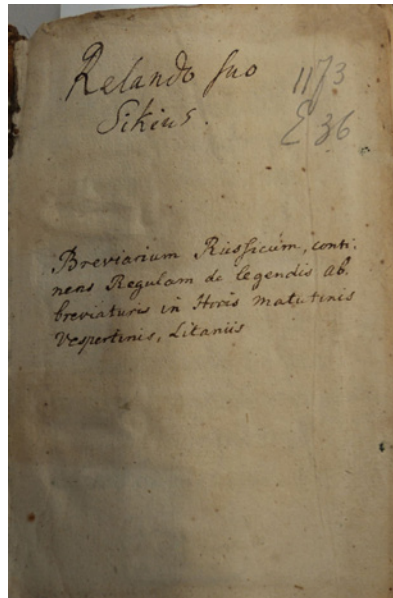 Relando suo
Sikius.
1173
E 36
Breviarium Russicum, conti-
nens Regulam de legendis ab-
breviaturis in Horis matutinis
Vespertinis, Litaniis